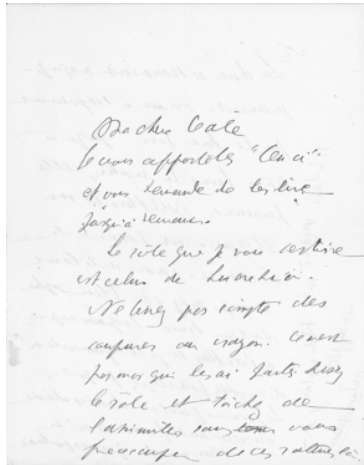 Ma chère Cale
Je vous apporte les "Cenci"
et vous demande de les lire
jusqu'à demain.
Le rôle que je vous destine
est celui de Lucrétia.
Ne tenez pas compte des
coupures au crayon. Ce n'est
pas moi qui les ai faites. Lisez
le rôle et tâchez de
l'assimiler sans vous
préoccuper de ces ratures